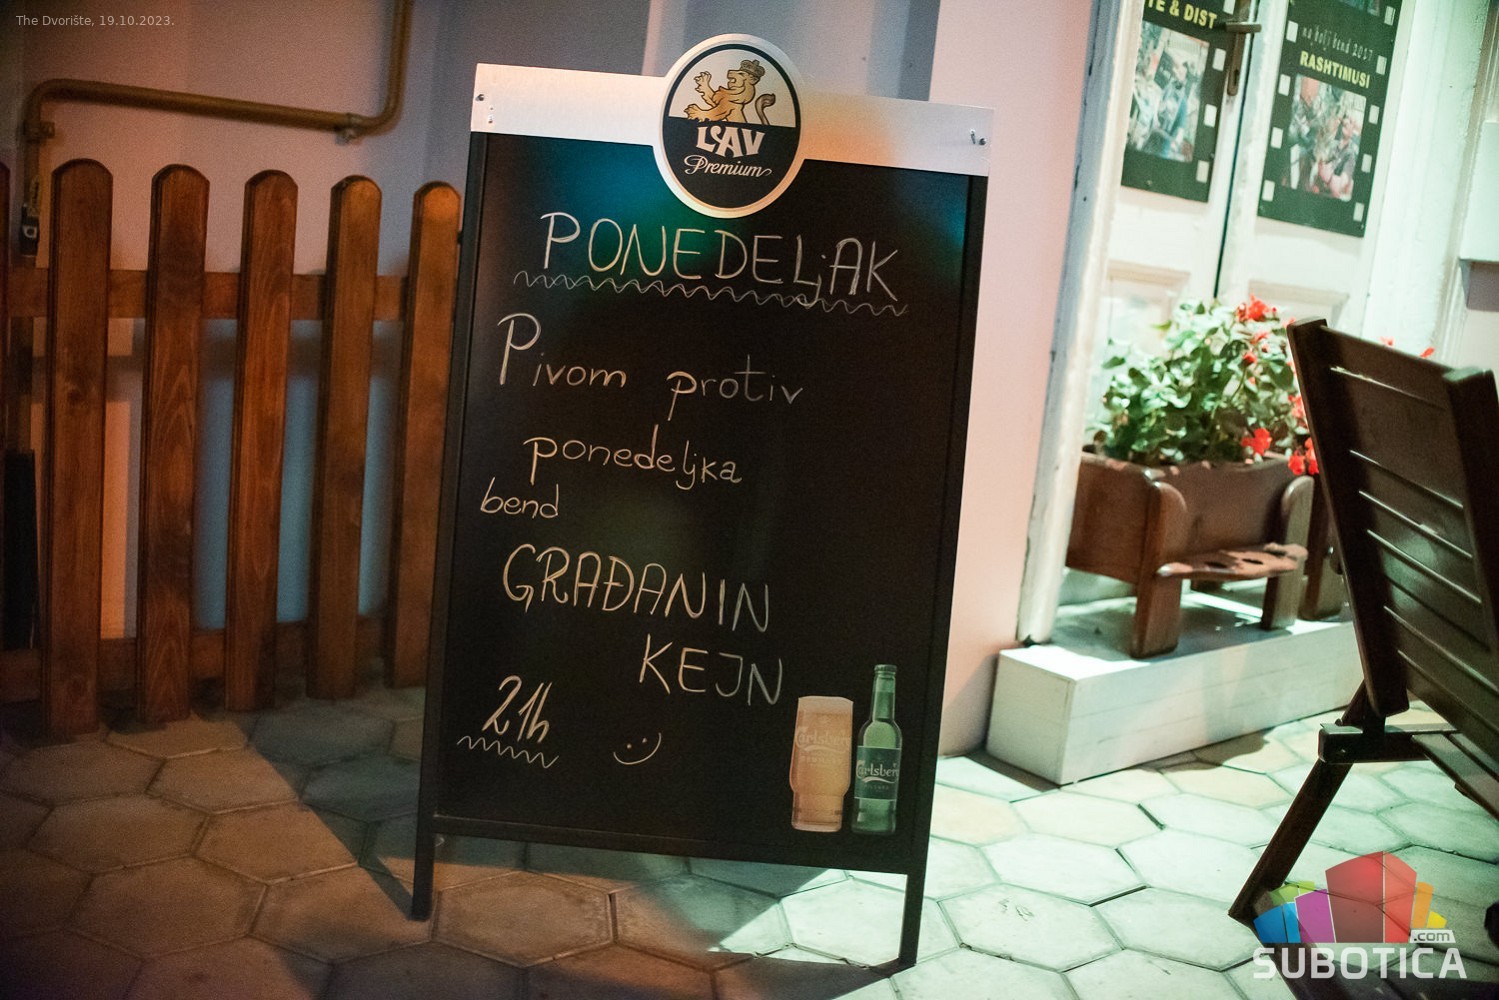 The Dvorište, 19.10.2023.
TE & DIST
na bolji bend 2017
RASHTIMUSI
LAV
Premium
PONEDELjAK
Pivom protiv
ponedeljka
bend
GRAĐANIN
KEJN
21h
Carlsberg
Carlsberg
.com
SUBOTICA